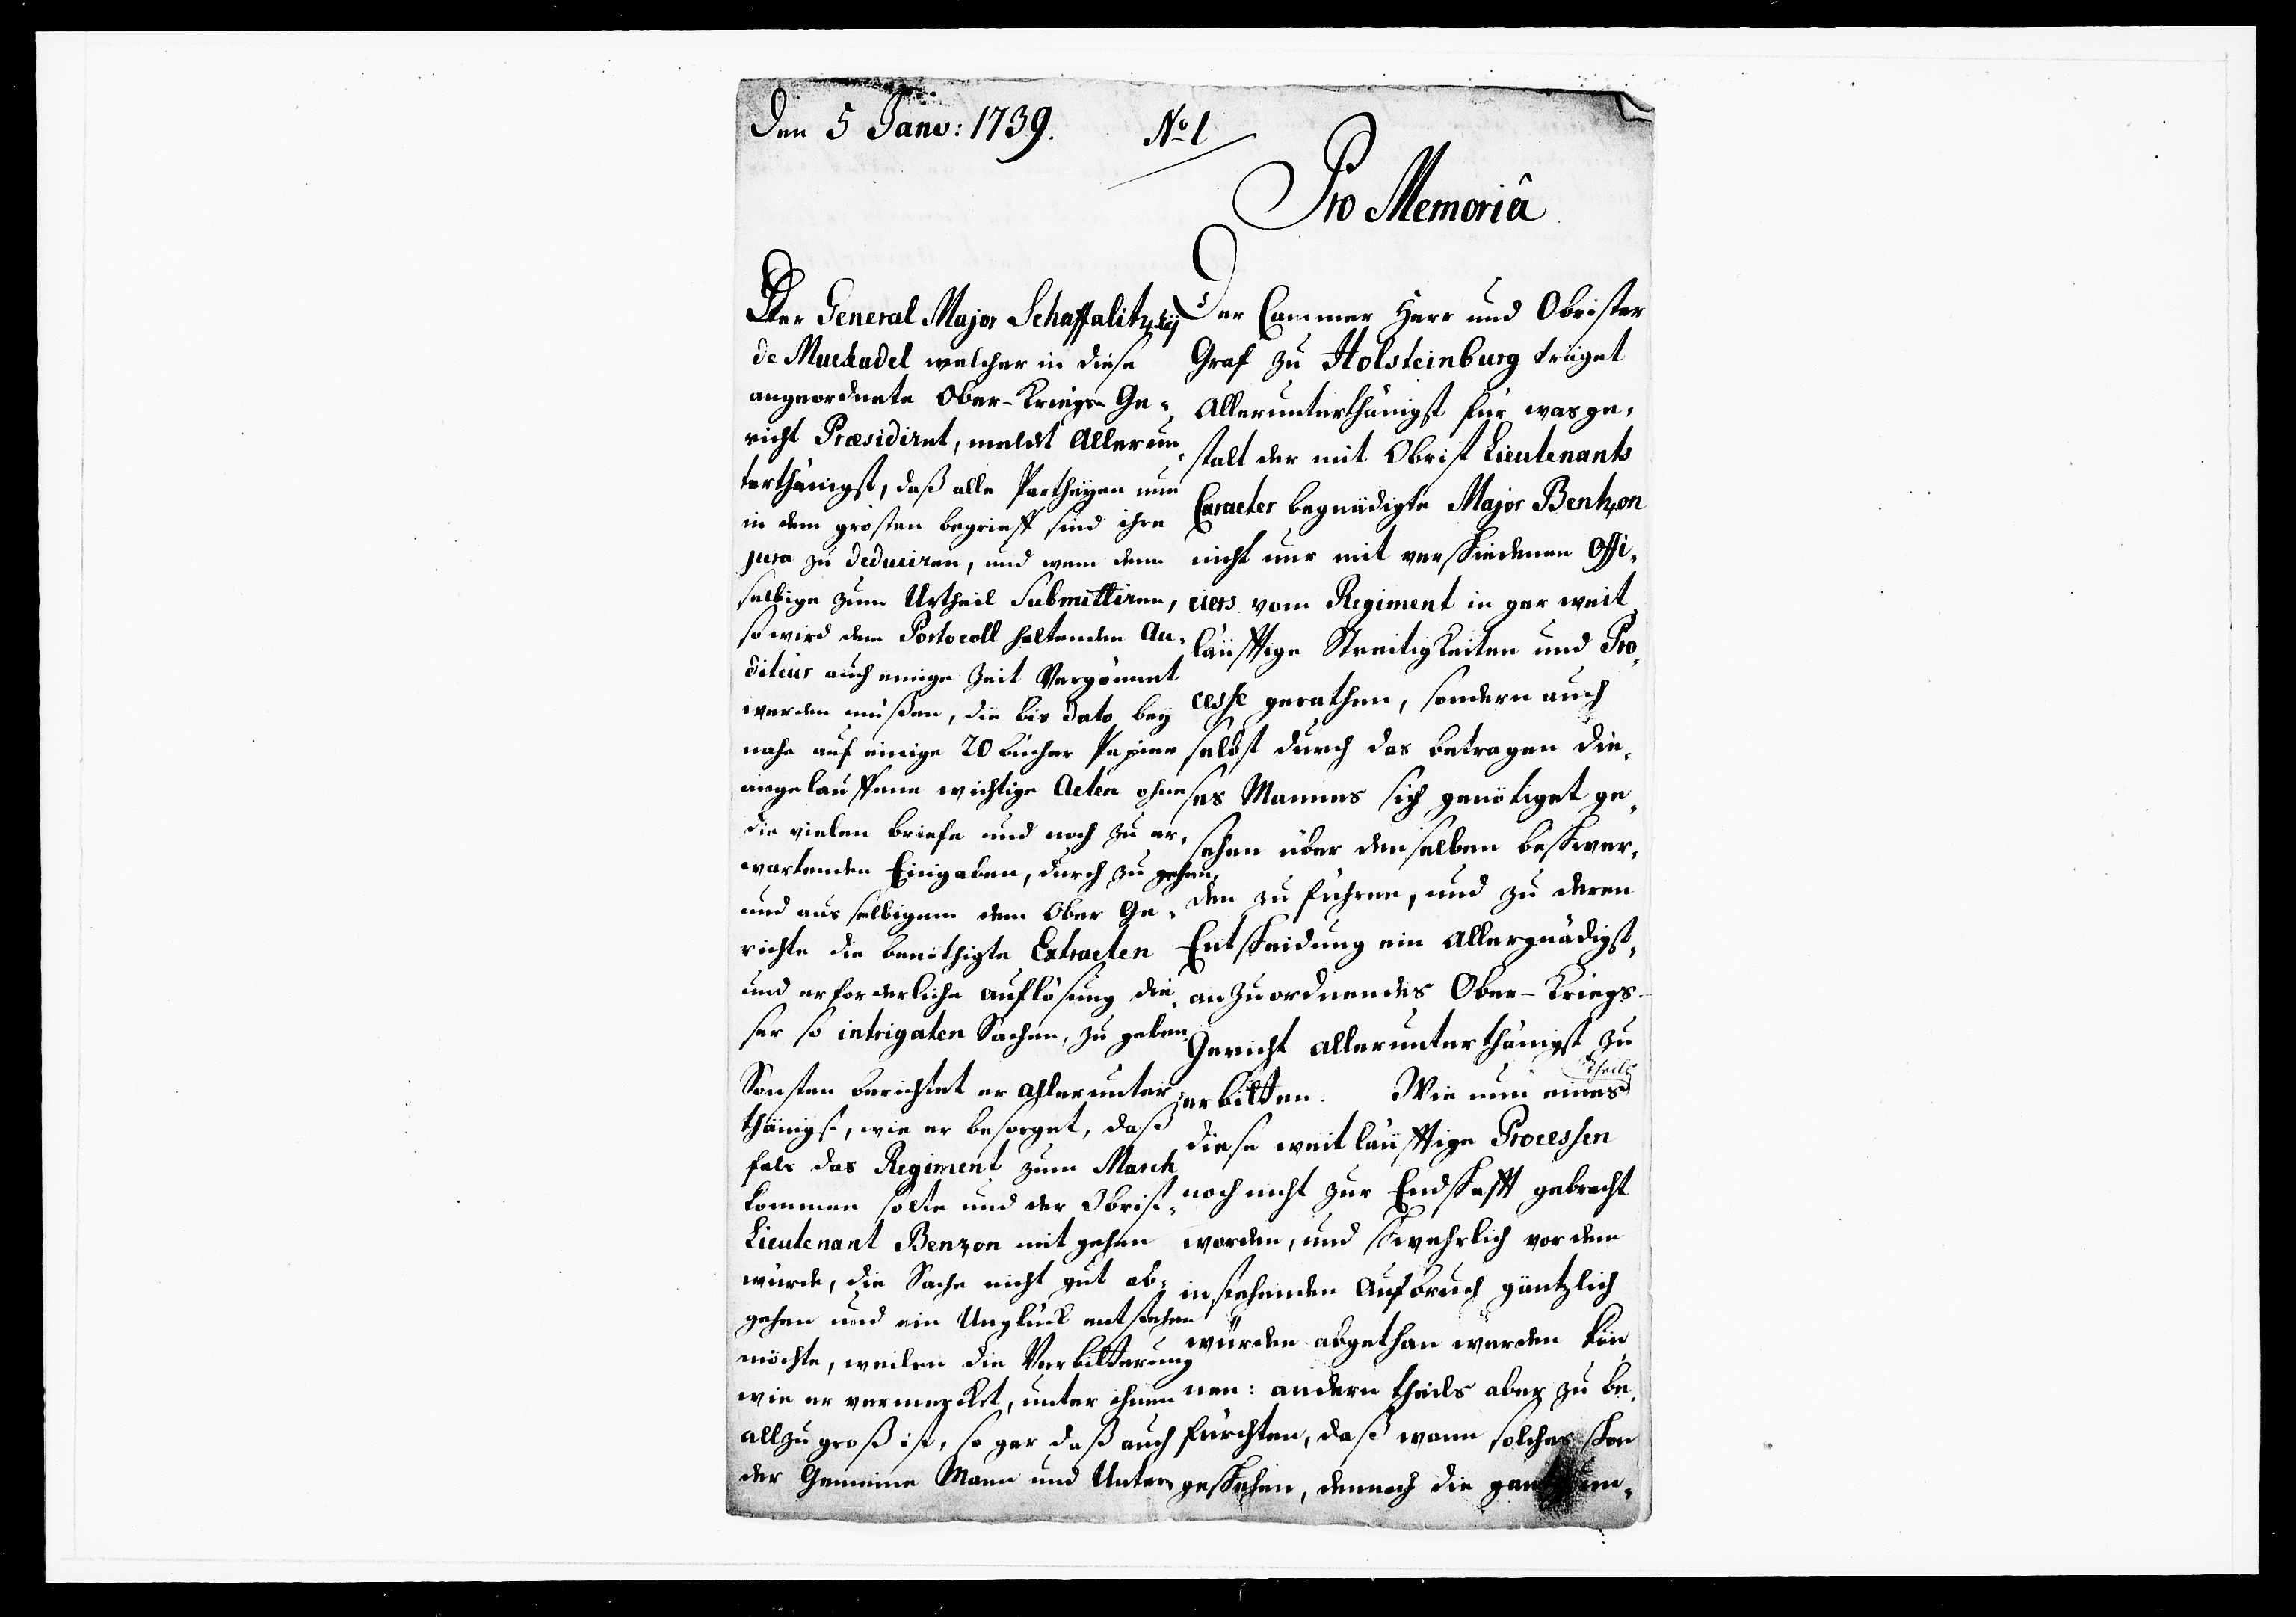 Den 5 Janv: 1739.
No 1
Pro Memoriâ
Der General Major Schaffalitzkÿ
de Muckadel welcher in diese
angeordnete Ober-Kriegs-Ge„
richt Præsidiret, meldt Allerun„
terthänigst, daß alle Partheyen nun
in dem grösten begrieff sind ihre
jura zu deduciren, und wenn denn
selbige zum Urtheil Submittiren,
so wird dem Portocoll haltenden Au„
diteur auch einige Zeit Vergönnet
werden müßen, die bis dato bey
nahe auf einige 20 bücher Papier
angelauffene wichtige Acten ohne
die vielen briefe und noch zu er„
wartenden Eingaben, durch zu gehen,
und aus selbigem dem Ober Ge„
richte die benöthigte Extracten
und erforderliche auflösung die„
ser so intrigaten Sachen, zu geben.
Sonsten berichtet er allerunter
thänigst, wie er besorget, daß
fals das Regiment zum March
kommen solte und der Obrist„
Lieutenant Benzon mit gehen
würde, die Sache nicht gut ab„
gehen und ein Unglück entstehen
möchte, weilen die Verbitterung
wie er vermercket, unter ihnen
allzu groß ist, so gar daß auch
der Gemeine Mann und Unter
Der Cammer Herr und Obrister
Graf zu Holsteinburg träget
Allerunterthänigst für, was ge„
stalt der mit Obrist Lieutenants
Caracter begnädigte Major Bentzon
nicht nur mit verschiedenen Offi„
ciers vom Regiment in gar weit
läufftige Streitigkeiten und Pro„
cesse gerathen, sondern auch
selbst durch das betragen die„
ses Mannes sich genötiget ge„
sehen über denselben beschwer„
den zu führen, und zu deren
Entscheidung ein Allergnädigst„
anzuordnendes Ober-Kriegs-
Gericht allerunterthänigst zu
erbitten. Wie nun eines theils
diese weitläufftige Processen
noch nicht zur Endschafft gebracht
worden, und schwehrlich vor dem
instehenden Aufbruch gäntzlich
würden abgethan werden kön„
nen: andern theils aber zu be„
fürchten, daß wann solches schon
geschehen, dennoch die